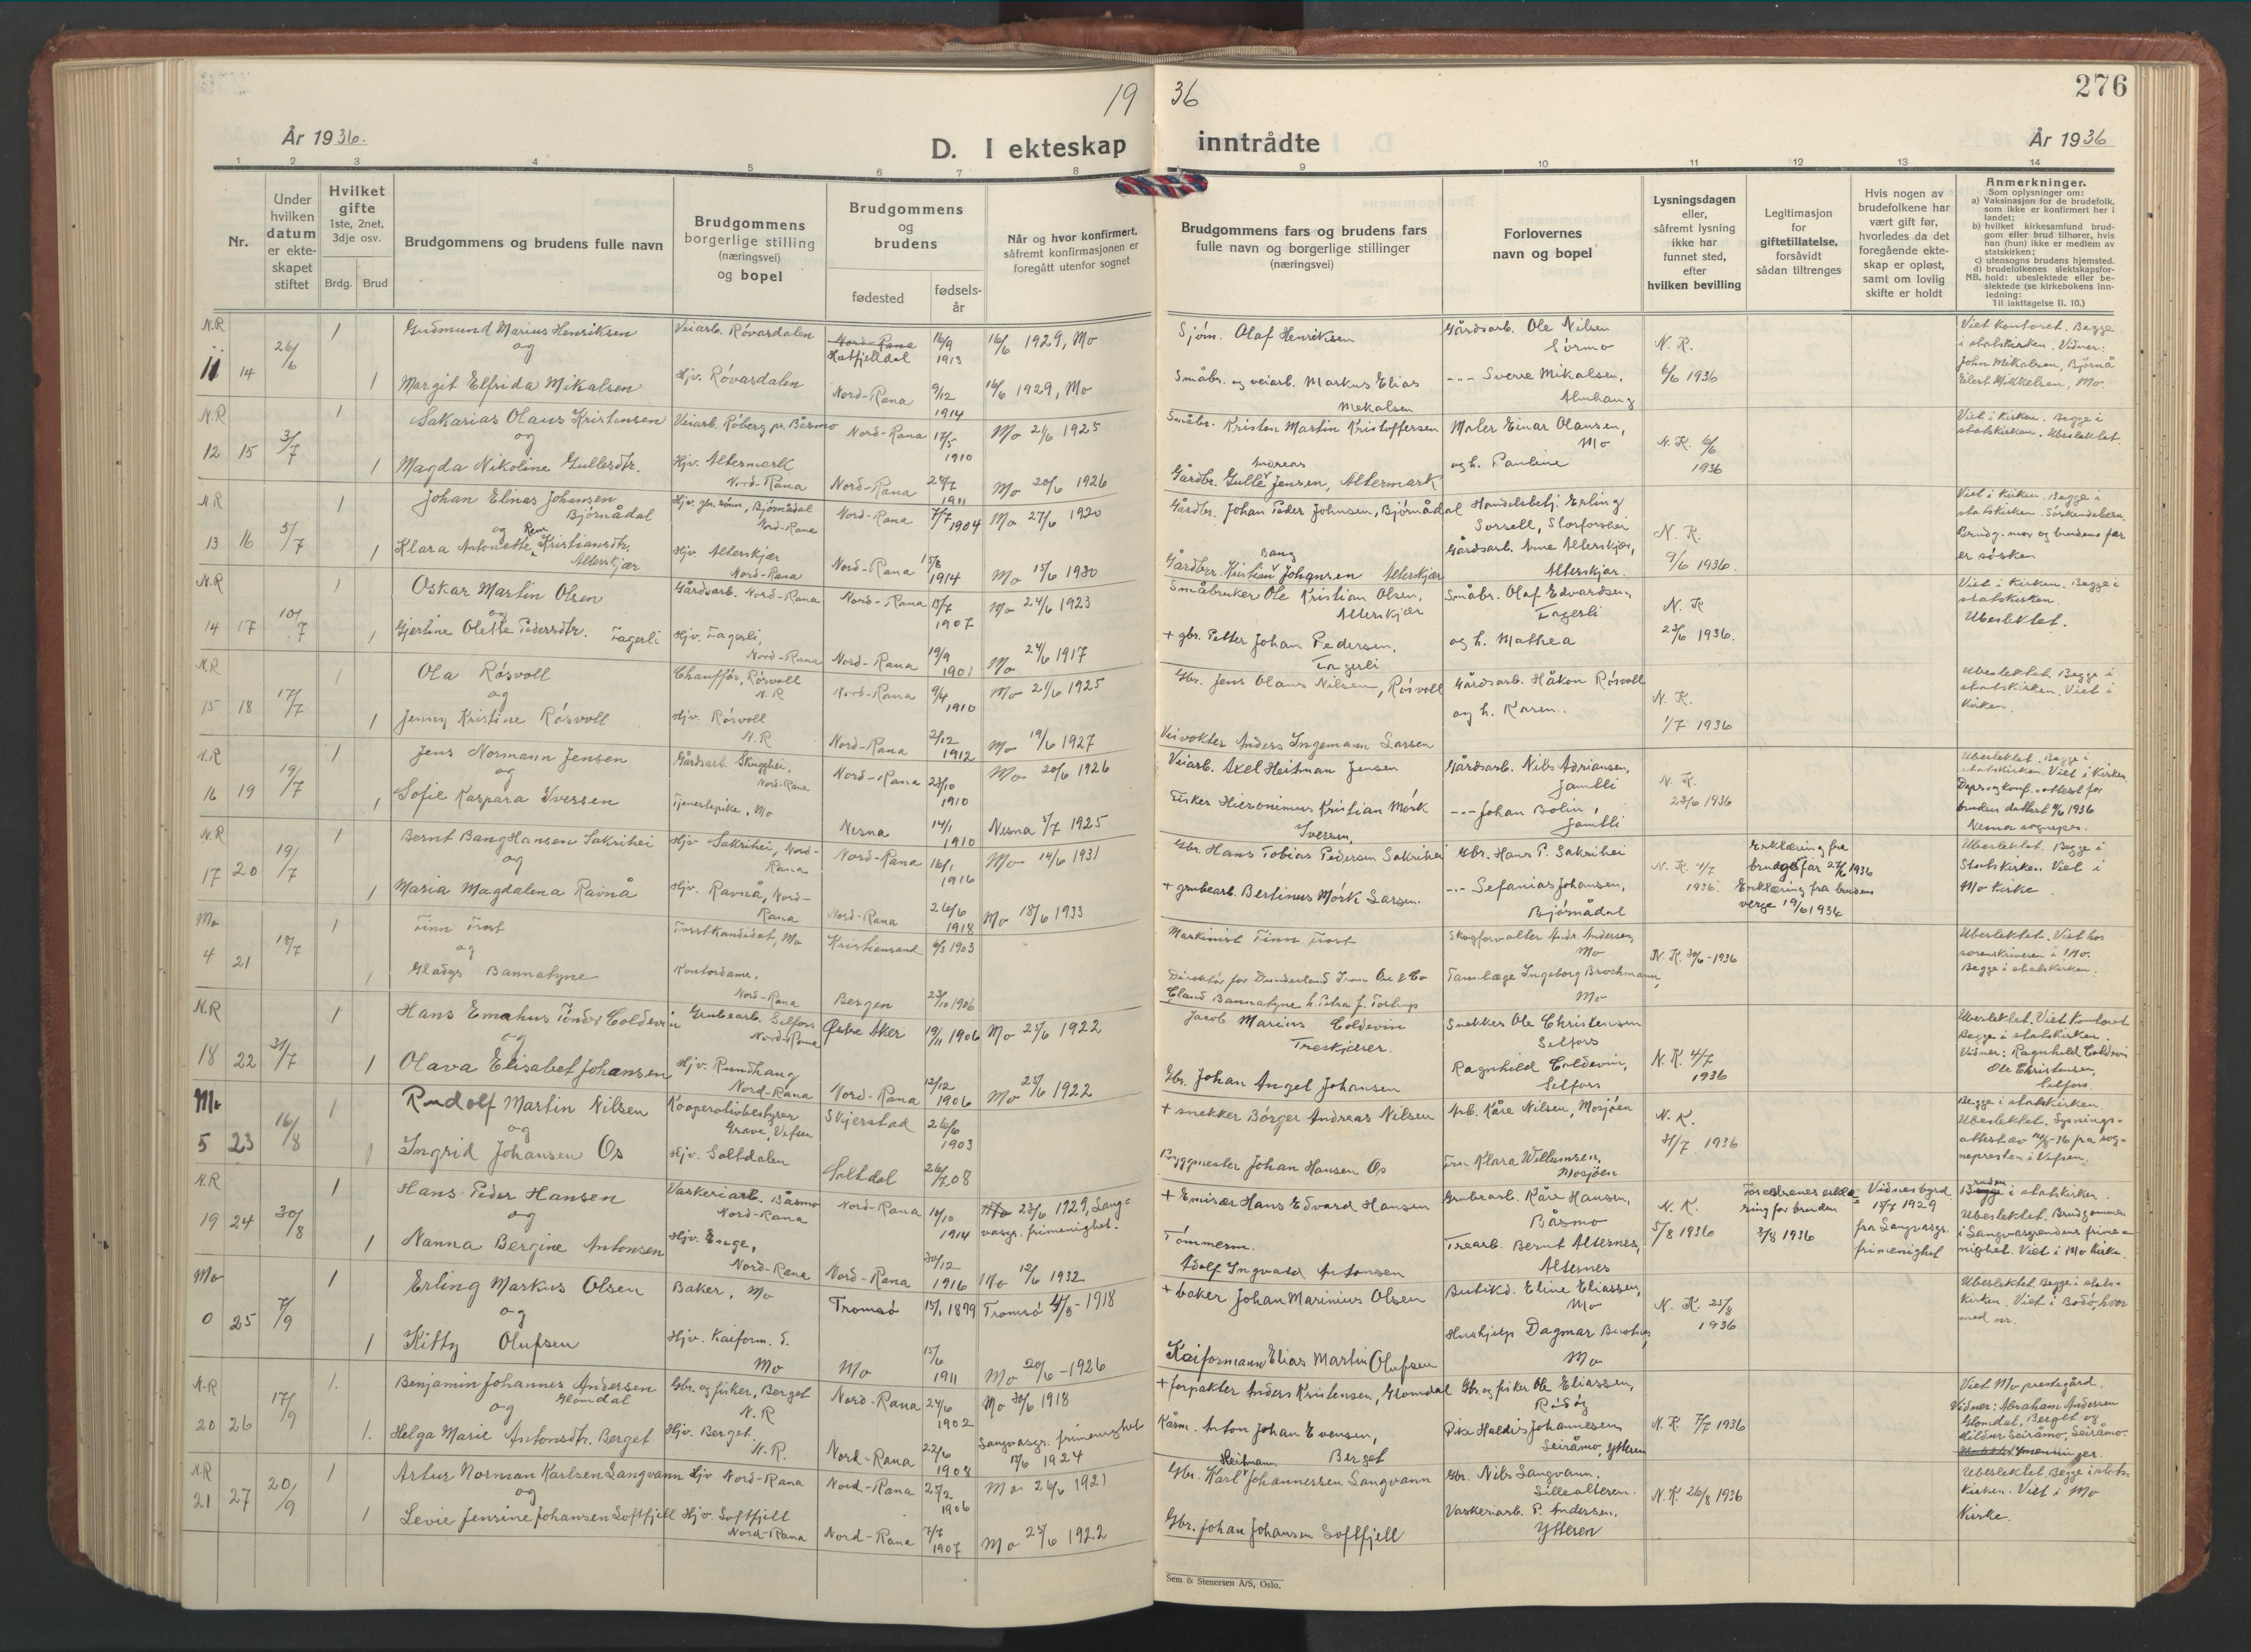 276
19 36
År 1936.
D. I ekteskap inntrådte
År 1936
1 2 3 4 5 6 7 8 9 10 11 12 13 14
Nr.
Under hvilken datum er ekteskapet stiftet
Hvilket gifte 1ste, 2net, 3dje osv.
Brdg. Brud
Brudgommens og brudens fulle navn
Brudgommens borgerlige stilling (næringsvei) og bopel
Brudgommens og brudens
fødested
fødselsår
Når og hvor konfirmert, såfremt konfirmasjonen er foregått utenfor sognet
Brudgommens fars og brudens fars fulle navn og borgerlige stillinger (næringsvei)
Forlovernes navn og bopel
Lysningsdagen eller, såfremt lysning ikke har funnet sted, efter hvilken bevilling
Legitimasjon for giftetillatelse, forsåvidt sådan tiltrenges
Hvis nogen av brudefolkene har vært gift før, hvorledes da det foregående ekteskap er opløst, samt om lovlig skifte er holdt
Anmerkninger.
Som oplysninger om:
a) Vaksinasjon for de brudefolk, som ikke er konfirmert her i landet;
b) hvilket kirkesamfund brudgom eller brud tilhører, hvis han (hun) ikke er medlem av statskirken;
c) utensogns brudens hjemsted.
d) brudefolkenes slektskapsforhold: ubeslektede eller beslektede (se kirkebokens innledning:
NB. Til iakttagelse II. 10.)
N.R 11 14 26/6 1 Gudmund Marius Henriksen Veiarb. Røvasdalen Nord-Rana Hatfjelldal 16/9 1913 16/6 1929, Mo Sjøm. Olaf Henriksen Gårdsarb. Ole Nilsen Sørmo N. K. 6/6 1936 Viet kontoret. Begge i statskirken. Vidner: John Mikalsen, Bjørnå Eilert Mikkelsen, Mo.
og
1 Margit Elfrida Mikalsen Hjv. Røvasdalen Nord-Rana 9/12 1914 16/6 1929, Mo Småbr. og veiarb. Markus Elias Mekalsen -"- Sverre Mikalsen, Almhaug
N.R 12 15 3/7 1 Sakarias Olaus Kristensen Veiarb. Røberg pr. Båsmo Nord-Rana 17/5 1910 Mo 21/6 1925 Småbr. Kristen Martin Kristoffersen Maler Einar Olausen, Mo N. K. 6/6 1936 Viet i kirken. Begge i statskirken. Ubeslektet.
og
1 Magda Nikoline Gullesdtr. Hjv. Altermark Nord-Rana Nord-Rana 28/7 1911 Mo 20/6 1926 Gårdbr. Gulle Andreas Jensen, Altermark og h. Pauline
N.R 13 16 5/7 1 Johan Elnas Johansen Bjørnådal Hjv. gbr. sønn, Bjørnådal Nord-Rana Nord-Rana 7/7 1904 Mo 27/6 1920 Gårdbr. Johan Peder Johnsen, Bjørnådal Handelsbetj. Erling Sørsell, Storforshei N. K. 9/6 1936. Viet i kirken. Begge i statskirken. Søskendebarn. Brudg. mor og brudens far er søsken
og
1 Klara Antonette Kristiansdtr. Alterskjær Hjv. Alterskjær Nord-Rana Nord-Rana 15/8 1914 Mo 15/6 1930 Gårdbr. Kristian Bang Johansen Alterskjær Gårdsarb. Arne Alterskjær, Alterskjær.
N.R 14 17 10/7 1 Oskar Martin Olsen Gårdsarb. Nord-Rana Nord-Rana 13/7 1907 Mo 24/6 1923 Småbruker Ole Kristian Olsen, Alterskjær Småbr. Olaf Edvardsen, Fagerli N. K 23/6 1936. Viet i kirken. Begge i statskirken. Ubeslektet.
og
1 Gjertine Olette Pedersdtr. Fagerli Hjv. Fagerli, Nord-Rana Nord-Rana 19/9 1901 Mo 24/6 1917 + gbr. Petter Johan Pedersen, Fagerli og h. Mathea
N.R 15 18 17/7 1 Ola Røsvoll Chauffør, Røsvoll N.R Nord-Rana 9/4 1910 Mo 21/6 1925 Gbr. Jens Olaus Nilsen, Røsvoll Gårdsarb. Håkon Røsvoll og h. Karen. N. K. 1/7 1936 Ubeslektet. Begge i statskirken. Viet i kirken.
og
1 Jenny Kristine Røsvoll Hjv. Røsvoll N.R Nord-Rana 2/12 1912 Mo 19/6 1927 Veivokter Anders Ingemann Larsen
N.R 16 19 19/7 1 Jens Normann Jensen Gårdsarb. Skugghei, Nord-Rana Nord-Rana 23/10 1910 Mo 20/6 1926 Veiarb. Axel Heitman Jensen Gårdsarb. Nils Adriansen, Jamtli N. K. 23/6 1936 Ubeslektet. Begge i statskirken. Viet i kirken Dåps og konf. attest for bruden datert 4/6 1936 Nesna sogneprs.
og
1 Sofie Kaspara Iversen Tjenestepike, Mo Nesna 14/1 1910 Nesna 5/7 1925 Fisker Hieronimus Kristian Mørk Iversen, -"- Johan Bolin, Jamtli
N.R 17 20 19/7 1 Bernt Bang Hansen Sakrihei Hjv Sakrihei, Nord-Rana Nord-Rana 16/1 1916 Mo 14/6 1931 Gbr. Hans Tobias Pedersen Sakrihei Gbr. Hans P. Sakrihei N. K. 4/7 1936. Erklæring fra brudg. far 27/6 1936 Erklæring fra brudens verge 19/6 1936 Ubeslektet. Begge i Statskirken. Viet i Mo Kirke
og
1 Maria Magdalena Ravnå Hjv. Ravnå, Nord-Rana Nord-Rana 26/6 1918 Mo 18/6 1933 + grubearb. Bertinus Mørk Larsen. -"- Sefanias Johansen, Bjørnådal
Mo 4 21 18/7 1 Finn Frost Forstkandidat, Mo Kristiansand 6/3 1903 Maskinist Finn Frost Skogforvalter Andr. Andersen, Mo N. K. 30/6-1936 Ubeslektet. Viet hos sorenskriveren i Mo. Begge i statskirken.
og
1 Gladys Bannatyne Kontordame, Nord-Rana Bergen 23/10 1906 Direktør for Dunderland Iron Ore & Co Claud Bannatyne h. Petra f. Tortrup Tannlæge Ingeborg Brochmann, Mo
N.R 18 22 31/7 1 Hans Emahus Tønder Coldevin Grubearb. Selfors Nord-Rana Østre Aker 19/11 1906 Mo 25/6 1922 Jacob Marius Coldevin Treskjærer. Snekker Ole Christensen Selfors N. K. 4/7 1936 Ubeslektet. Viet Kontoret Begge i statskirken. Vidner: Ragnhild Coldevin Ole Christensen, Selfors.
og
1 Olava Elisabet Johansen Hjv. Rundhaug Nord-Rana Nord-Rana 12/12 1906 Mo 25/6 1922 Gbr. Johan Angel Johansen Ragnhild Coldevin, Selfors
Mo 5 23 16/8 1 Rudolf Martin Nilsen Kooperativbestyrer Grave, Vefsen Skjerstad 26/6 1903 + snekker Børger Andreas Nilsen Arb. Kåre Nilsen, Mosjøen N. K. 31/7 1936 Begge i statskirken. Ubeslektet. Lysningsattest av 14/8-36 fra sognepresten i Vefsen.
og
1 Ingrid Johansen Os Hjv. Saltdalen Saltdal 26/7.08 Byggmester Johan Hansen Os Fru Klara Willumsen, Mosjøen
N.R 19 24 30/8 1 Hans Peder Hansen Vaskeriarb. Båsmo Nord-Rana Nord-Rana 14/10 1914 Mo 23/6 1929, Langvasgr. frimenighet. + Emisær Hans Edvard Hansen Grubearb. Kåre Hansen, Båsmo N. K. 5/8 1936 Foreldrenes erklæring for bruden 3/8 1936 Vidnesbyrd 15/7 1929 fra Langvasgr. frimenighet Bruden i statskirken. Ubeslektet. Brudgommen i Langvasgrendens frimenighet. Viet i Mo Kirke.
og
1 Nanna Bergine Antonsen Hjv. Enge, Nord-Rana Nord-Rana 30/12 1916 Mo 12/6 1932 Tømmerm. Adolf Ingvald Antonsen Trearb. Bernt Alternes, Alternes
Mo 0 25 7/9 1 Erling Markus Olsen Baker, Mo Tromsø 15/1 1899 Tromsø 4/5-1918 + baker Johan Marinius Olsen Butikd. Eline Eliassen, Mo N. K. 25/8 1936 Ubeslektet Begge i statskirken. Viet i Bodø, hvor med nr.
og
1 Kitty Olufsen Hjv. Kaiform. S. Mo Mo 15/6 1911 Mo 20/6-1926 Kaiformann Elias Martin Olufsen Hushjelp Dagmar Mo
N.R 20 26 17/9 1. Benjamin Johannes Andersen Glomdal Gbr. og fisker, Berget N.R Nord-Rana 24/6 1902 Mo 30/6 1918 + forpakter Anders Kristensen, Glomdal Gbr. og fisker Ole Eliassen, Rødøy N. K. 7/7 1936 Viet Mo prestegård. Vidner: Abraham Andersen Glomdal, Berget og Hildur Seiråmo, Seiråmo.
og
1. Helga Marie Antonsdtr. Berget Hjv. Berget. N.R. Nord-Rana 22/6 1908 Langvasgr. frimenighet 15/6 1924 Kårm. Anton Johan Evensen, Berget Pike Haldis Johannesen Seiråmo, Ytteren
N.R 21 27 20/9 1 Artur Norman Karlsen Langvann Hjv Nord-Rana Nord-Rana 25/2 1906 Mo 26/6 1921 Gbr. Karl Heitmann Johannessen Langvann Gbr. Nils Langvann, Lillealteren. N. K. 26/8 1936 Ubeslektet. Begge i statskirken. Viet i Mo Kirke.
og
1 Levie Jensine Johansen Loftfjell Hjv. Loftfjell Nord-Rana Nord-Rana 7/7 1907 Mo 25/6 1922 Gbr. Johan Johansen Loftfjell Vaskeriarb. P. Andersen. Ytteren
Sem & Stenersen A/S, Oslo.